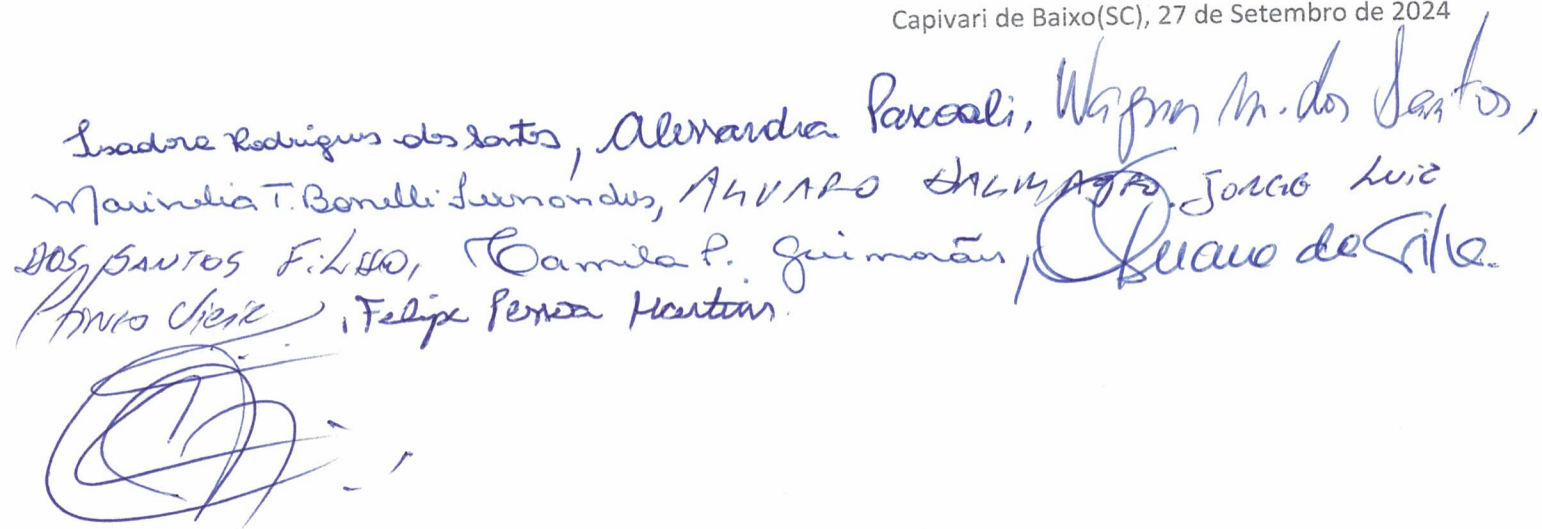 Capivari de Baixo(SC), 27 de Setembro de 2024
Isadora Rodrigues dos Santos, Alessandra Pascoali, Wagner M. dos Santos,
Marinelia T. Bonelli Fernandes, ALVARO DALMAGRO, JORGE LUIZ
DOS SANTOS FILHO, Camila P. Guimarães, da Silva.
Vieira, Felipe Pessoa Martins.